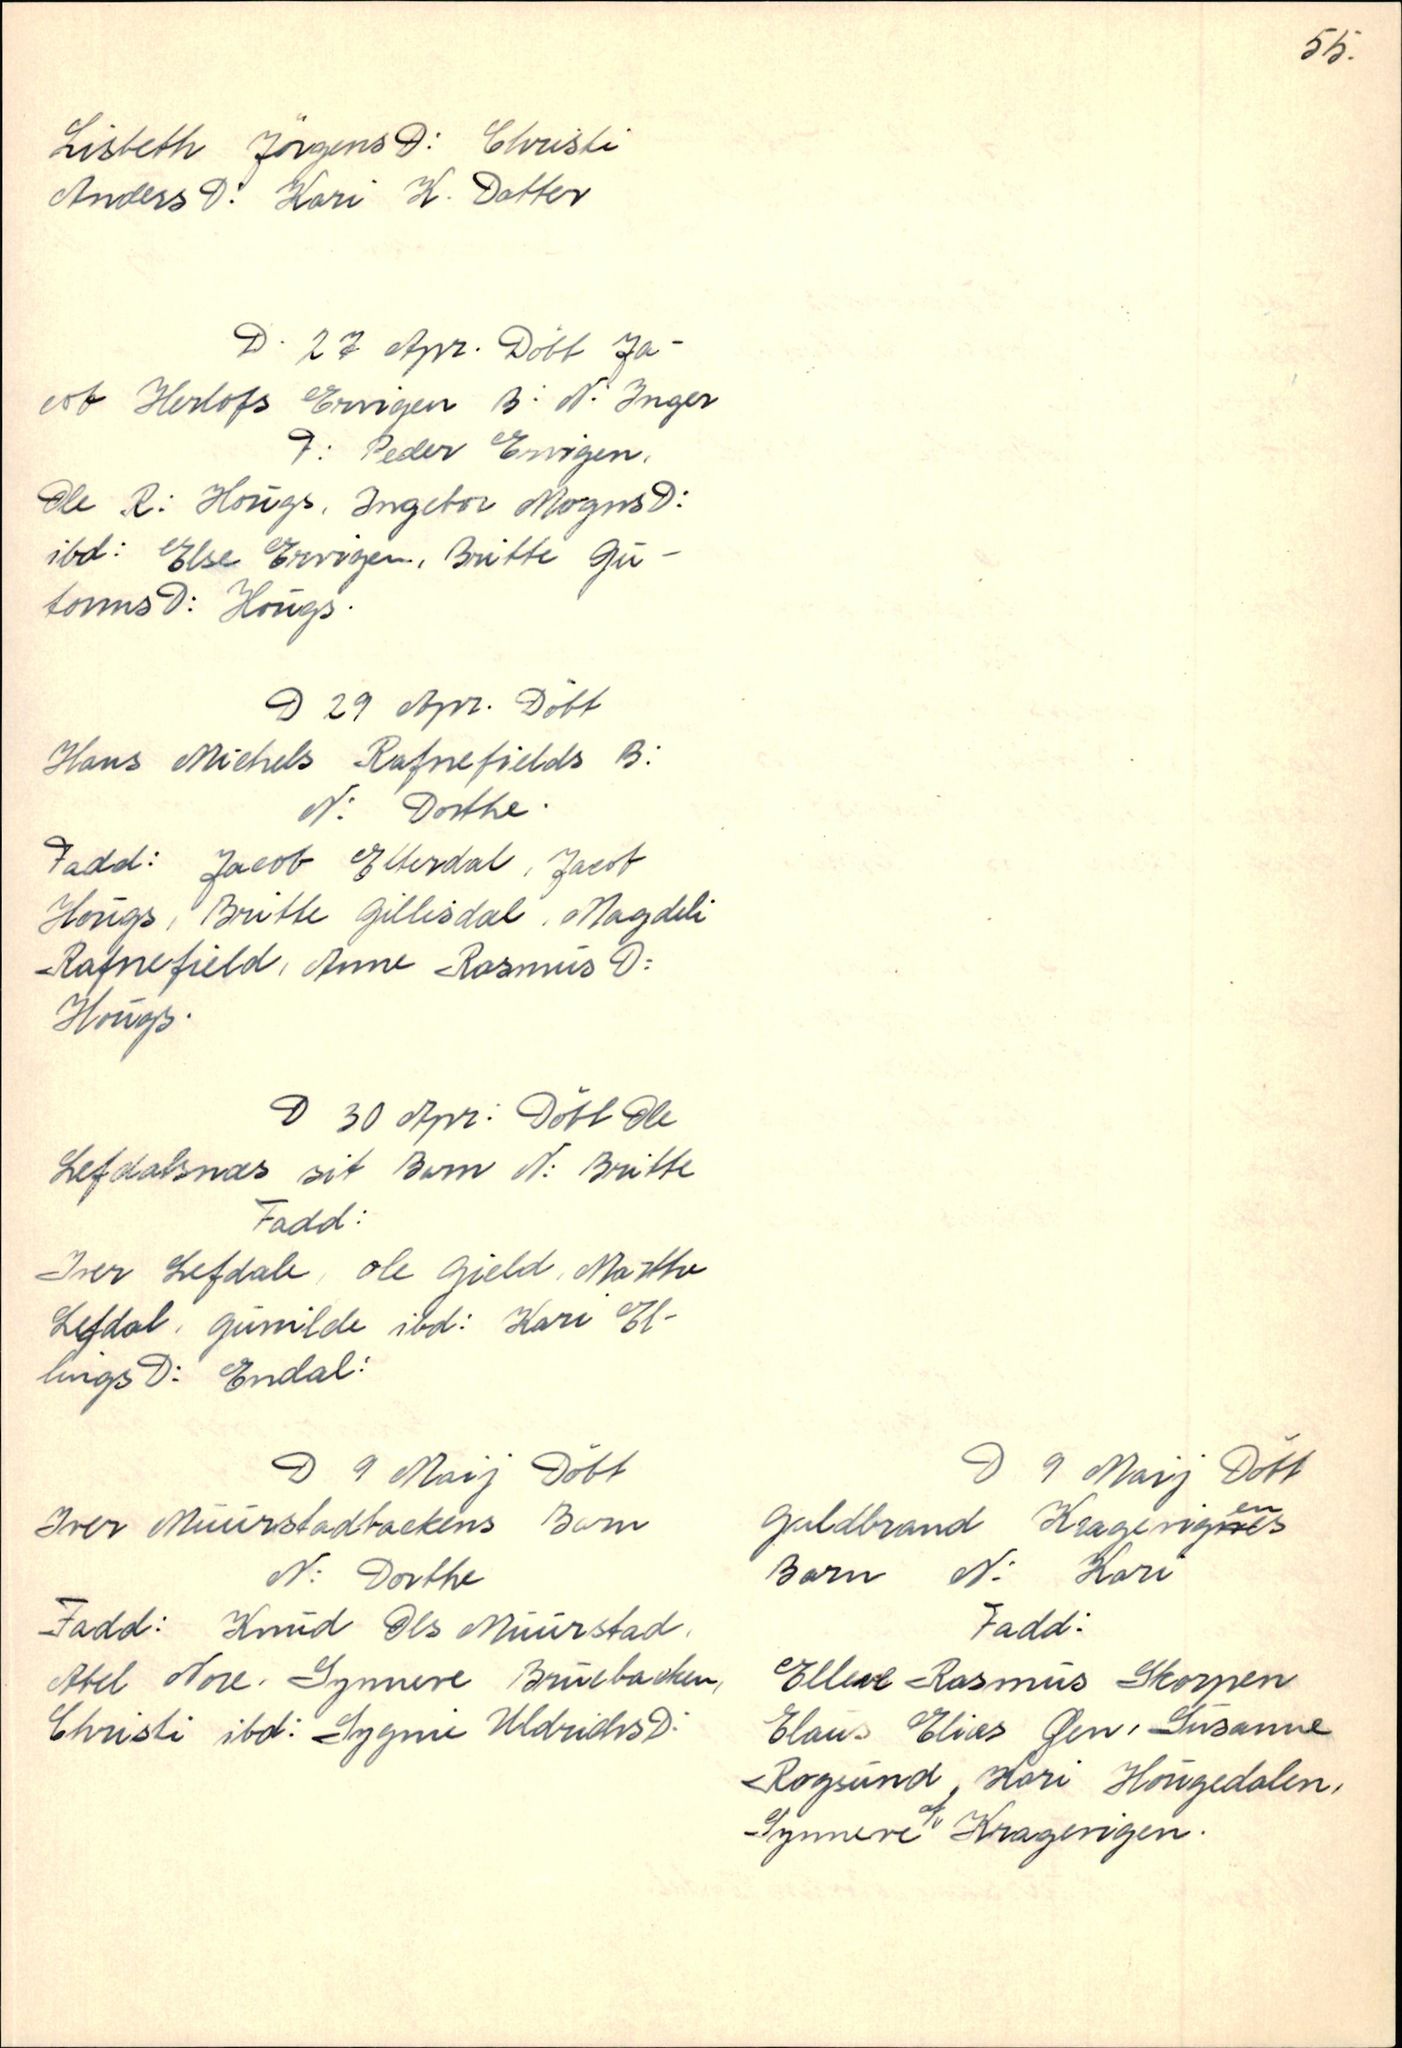 55.
Lisbeth JörgensD: Christi
AndersD: Kari K. Datter
D. 27 Apr. Döbt Ja-
cob Herlofs Ervigen B: N: Inger
F: Peder Ervigen,
Ole R: Hoŭgs, Ingebor MognsD:
ibd: Else Ervigen, Britte Gŭ-
tormsD: Hoŭgs.
D 29 Apr. Döbt
Hans Michels Rafnefields B:
N: Dorthe.
Fadd: Jacob Elterdal, Jacob
Hoŭgs, Britte Gillisdal, Magdeli
Rafnefield, Anne RasmŭsD:
Hoŭgs.
D 30 Apr: Döbt Ole
Lefdalsnæs sit Barn N: Britte
Fadd:
Iver Lefdale, Ole Gield, Marthe
Lefdal, Gŭnilde ibd: Kari El-
lingsD: Endal:
D 9 Maij Döbt
Iver Mŭŭrstadbackens Barn
N: Dorthe
Fadd: Knŭd Ols Mŭŭrstad,
Abel Nore, Synneve Brŭebacken,
Christi ibd: Sygnie UldrichsD:
D 9 Maij Döbt
Guldbrand Kragevigenes
Barn N: Kari
Fadd:
Elleve Rasmŭs Skorpen
Claŭs Elias Øen, Sŭsanne
Rogsŭnd, Kari Hoŭgedalen,
Synneve af Kragevigen.